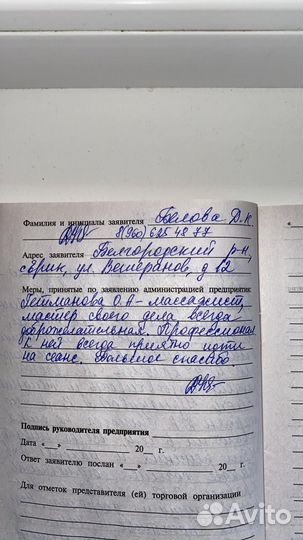 Фамилия и инициалы заявителя Белова Д.К.
8(960) 625 48 77
Адрес заявителя Белгородский р-н,
ул. Ветеранов, д 12
Меры, принятые по заявлению администрацией предприятия
Гетманова О.А - массажист,
мастер своего дела всегда
доброжелательная. Профессионал
к ней всегда приятно идти
на сеанс. Большое спасибо.
Подпись руководителя предприятия
Дата «__» 20__ г.
Ответ заявителю послан «__» 20__ г.
Для отметок представителя (ей) торговой организации
Avito